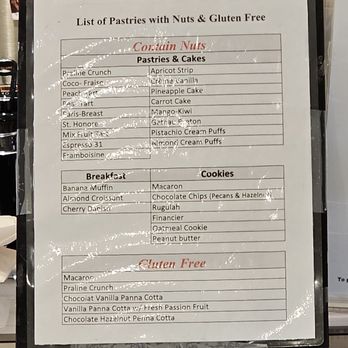 List of Pastries with Nuts & Gluten Free
Contain Nuts
Pastries & Cakes
Praline Crunch Apricot Strip
Coco- Fraise Crème Vanilla
Peach Tart Pineapple Cake
Tart Carrot Cake
Paris-Breast Mango-Kiwi
St. Honore Breton
Mix Fruit Tart Pistachio Cream Puffs
Espresso 31 Almond Cream Puffs
Framboisine
Breakfast Cookies
Banana Muffin Macaron
Almond Croissant Chocolate Chips (Pecans & Hazelnut)
Cherry Danish Rugulah
Financier
Oatmeal Cookie
Peanut butter
Gluten Free
Macaron
Praline Crunch
Chocolat Vanilla Panna Cotta
Vanilla Panna Cotta w/ Fresh Passion Fruit
Chocolate Hazelnut Panna Cotta